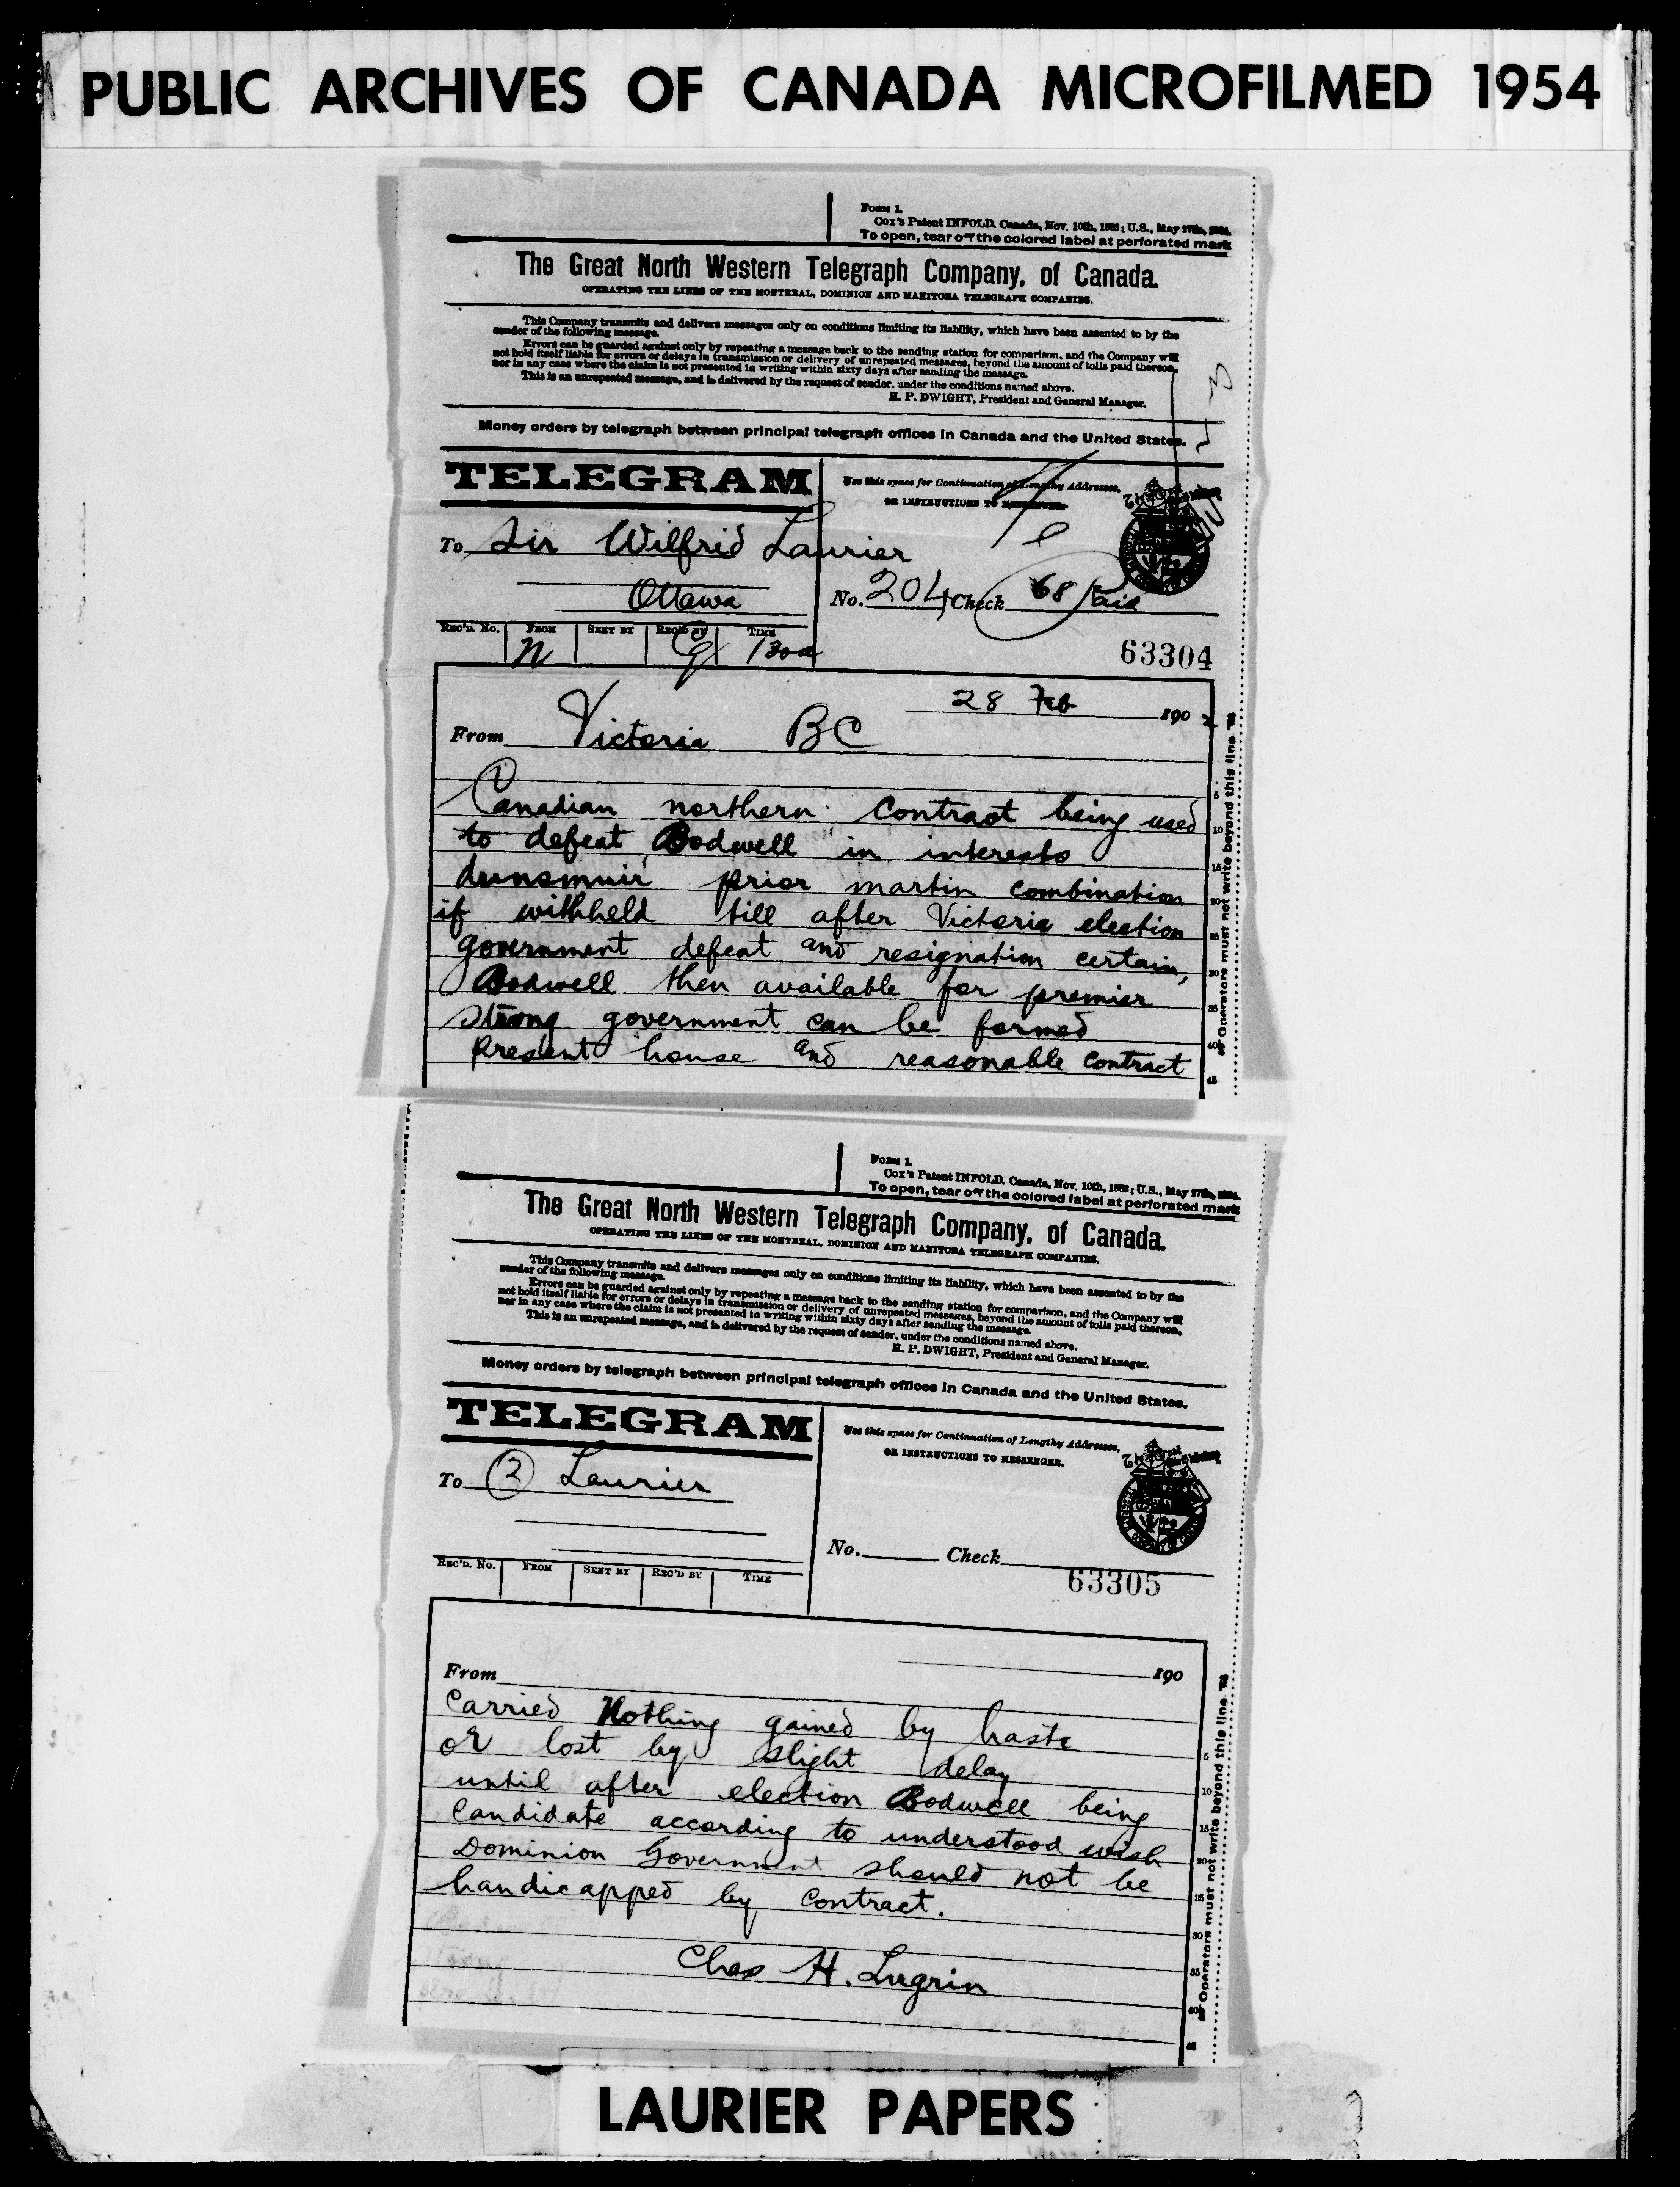 PUBLIC ARCHIVES OF CANADA MICROFILMED 1954
FORM 1.
Cox's Patent INFOLD. Canada, Nov. 10th, 1883; U.S., May 27th,
To open, tear off the colored label at perforated mark
The Great North Western Telegraph Company, of Canada.
OPERATING THE LINES OF THE MONTREAL, DOMINION AND MANITOBA TELEGRAPH COMPANIES.
This Company transmits and delivers messages only on conditions limiting its liability, which have been assented to by the
sender of the following message.
Errors can be guarded against only by repeating a message back to the sending station for comparison, and the Company will
not hold itself liable for errors or delays in transmission or delivery of unrepeated messages, beyond the amount of tolls paid thereon,
nor in any case where the claim is not presented in writing within sixty days after sending the message.
This is an unrepeated message, and is delivered by the request of sender, under the conditions named above.
H. P. DWIGHT, President and General Manager.
Money orders by telegraph between principal telegraph offices in Canada and the United States.
TELEGRAM
Use this space for Continuation of Lengthy Addresses,
OR INSTRUCTIONS TO MESSENGER.
To Sir Wilfrid Laurier
Ottawa
No. 204 Check 68 Paid
REC'D. No. FROM SENT BY REC'D BY TIME
N G 130a
63304
28 Feb 1902
From Victoria BC
Canadian northern contract being used
to defeat Bodwell in interests
dunsmuir prior martin combination
if withheld till after Victoria election
government defeat and resignation certain,
Bodwell then available for premier
strong government can be formed
present house and reasonable contract
Operators must not write beyond this line.
5
10
15
20
25
30
35
40
45
FORM 1.
Cox's Patent INFOLD. Canada, Nov. 10th, 1883; U.S., May 27th,
To open, tear off the colored label at perforated mark
The Great North Western Telegraph Company, of Canada.
OPERATING THE LINES OF THE MONTREAL, DOMINION AND MANITOBA TELEGRAPH COMPANIES.
This Company transmits and delivers messages only on conditions limiting its liability, which have been assented to by the
sender of the following message.
Errors can be guarded against only by repeating a message back to the sending station for comparison, and the Company will
not hold itself liable for errors or delays in transmission or delivery of unrepeated messages, beyond the amount of tolls paid thereon,
nor in any case where the claim is not presented in writing within sixty days after sending the message.
This is an unrepeated message, and is delivered by the request of sender, under the conditions named above.
H. P. DWIGHT, President and General Manager.
Money orders by telegraph between principal telegraph offices in Canada and the United States.
TELEGRAM
Use this space for Continuation of Lengthy Addresses,
OR INSTRUCTIONS TO MESSENGER.
To 2 Laurier
No. Check
REC'D. No. FROM SENT BY REC'D BY TIME
63305
From 190
carried Nothing gained by haste
or lost by slight delay
until after election Bodwell being
candidate according to understood wish
Dominion Government should not be
handicapped by contract.
Chas H. Lugrin
Operators must not write beyond this line.
5
10
15
20
25
30
35
40
45
LAURIER PAPERS